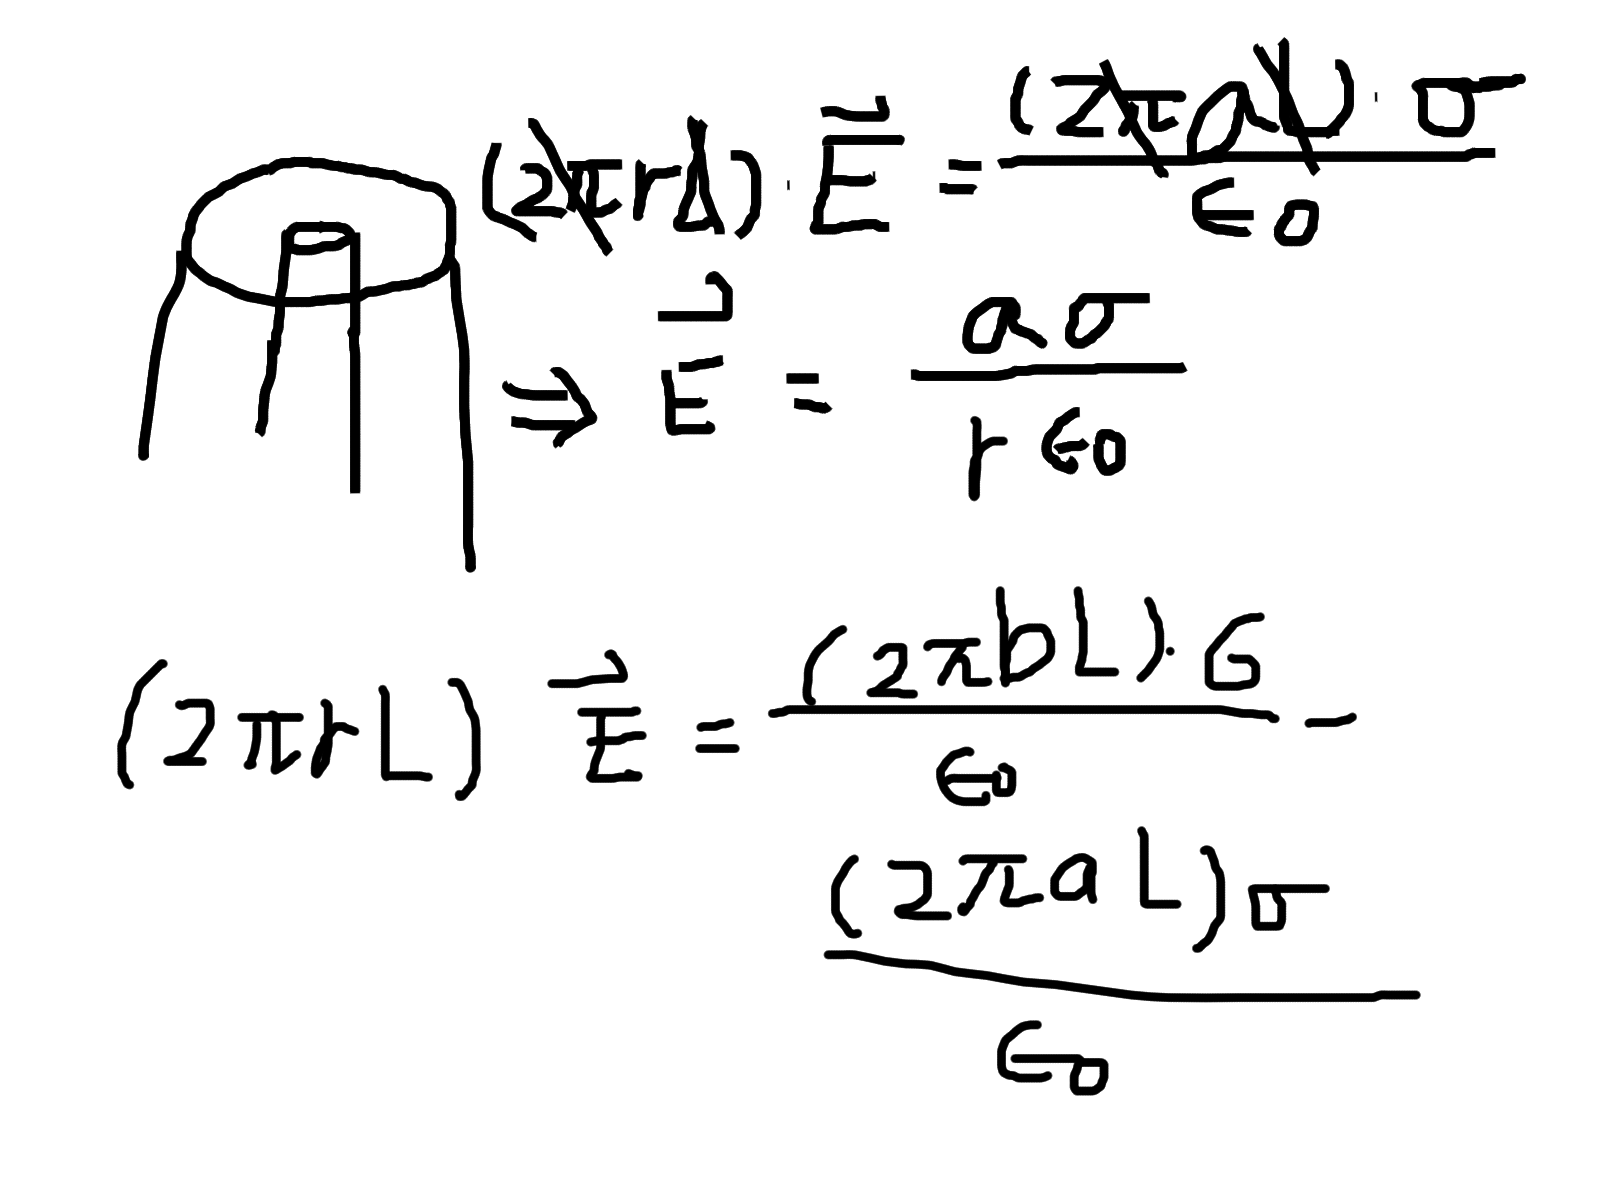 (2πrL) · E⃗ = (2πaL) · σ / ϵ0
⇒ E⃗ = aσ / rϵ0
(2πrL) E⃗ = (2πbL) · σ / ϵ0 −
(2πaL)σ / ϵ0